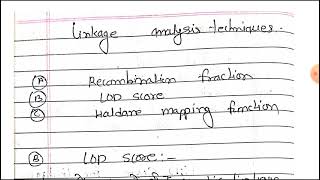 Linkage analysis techniques.
(A) Recombination fraction
(B) LOD score
(C) Haldane mapping function
(B) LOD score :-